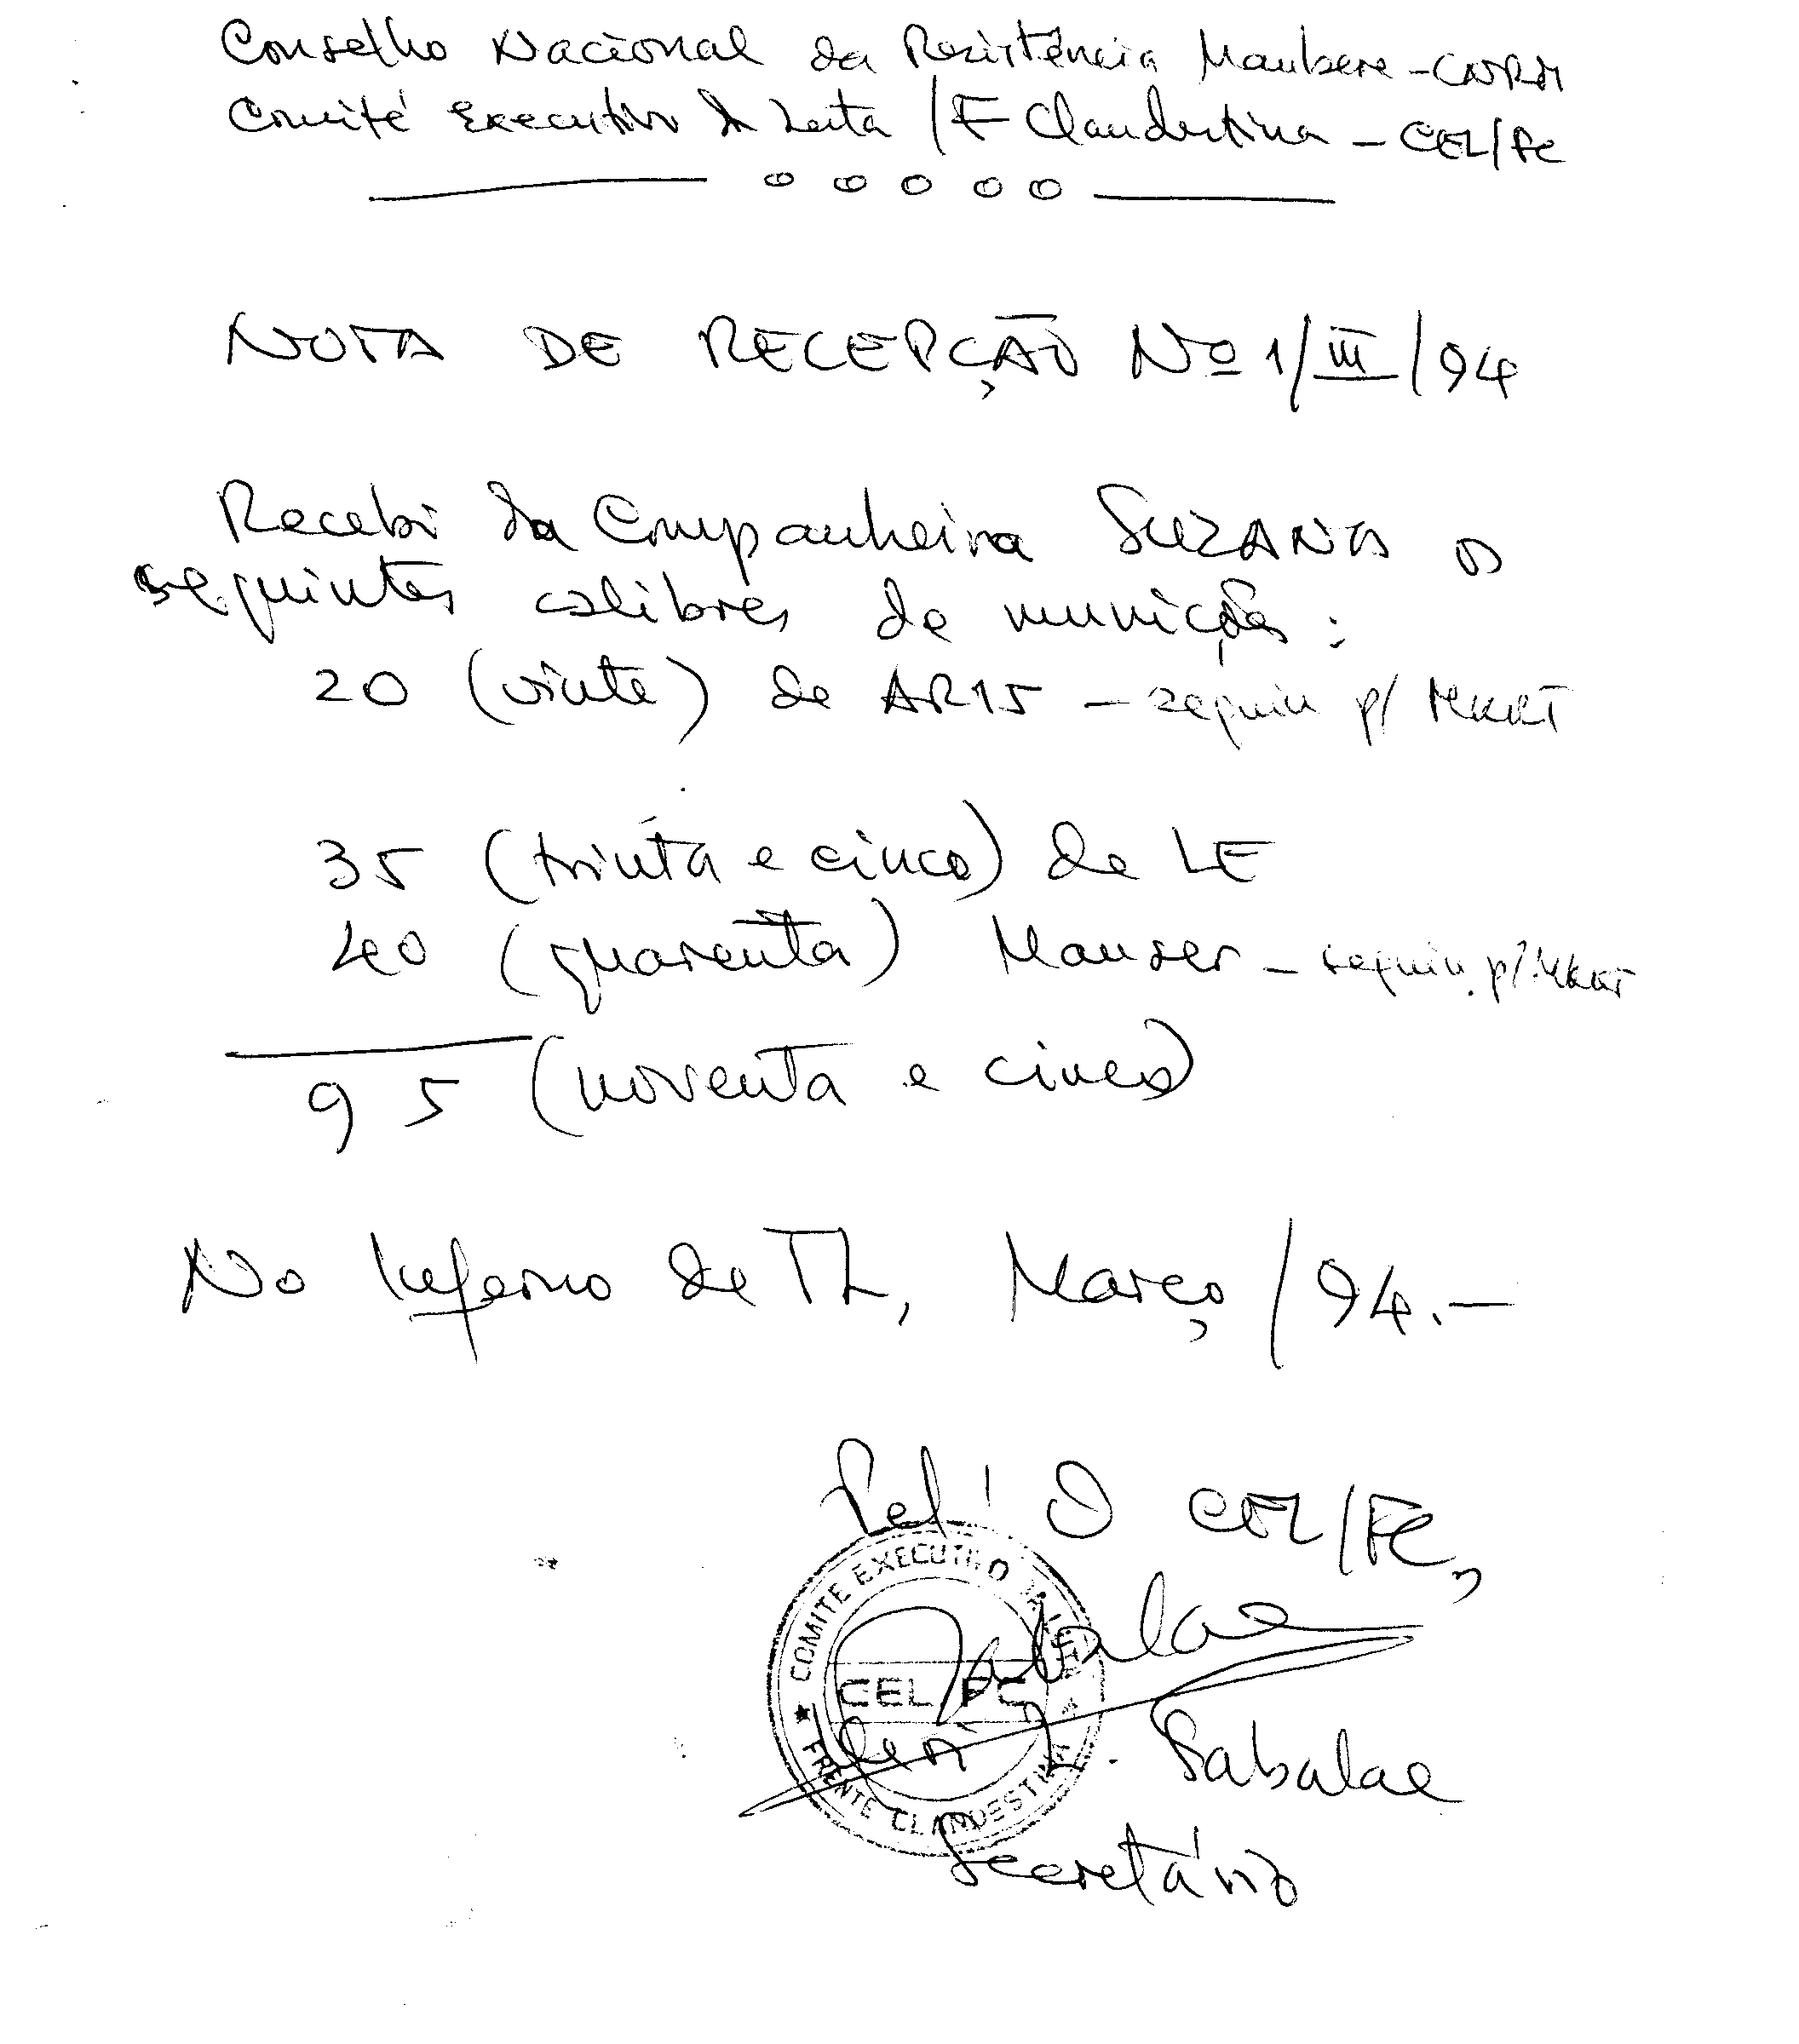 Conselho Nacional da Resistência Maubere - CNRM
Comité Executivo da Luta / F Clandestina - CEL/FC
NOTA DE RECEPÇÃO Nº 1/III/94
Recebi da Companheira SUZANA os
seguintes calibres de munições:
20 (vinte) de AR15 - seguiu p/ MKRT
35 (trinta e cinco) de LE
40 (quarenta) Mauser - seguiu p/ MKRT
95 (noventa e cinco)
No Inferno de TL, Março/94.-
Pel' O CEL/FC,
COMITE EXECUTIVO DA LUTA
CEL/FC
FRENTE CLANDESTINA
Sabalae
Sabalae
Secretário